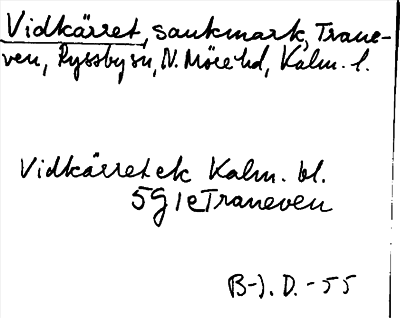 Vidkärret, sankmark, Trane-
ven, Ryssby sn, N. Möre hd, Kalm. l.
Vidkärret ek Kalm. bl.
5G 1e Traneven
B-J. D. - 55